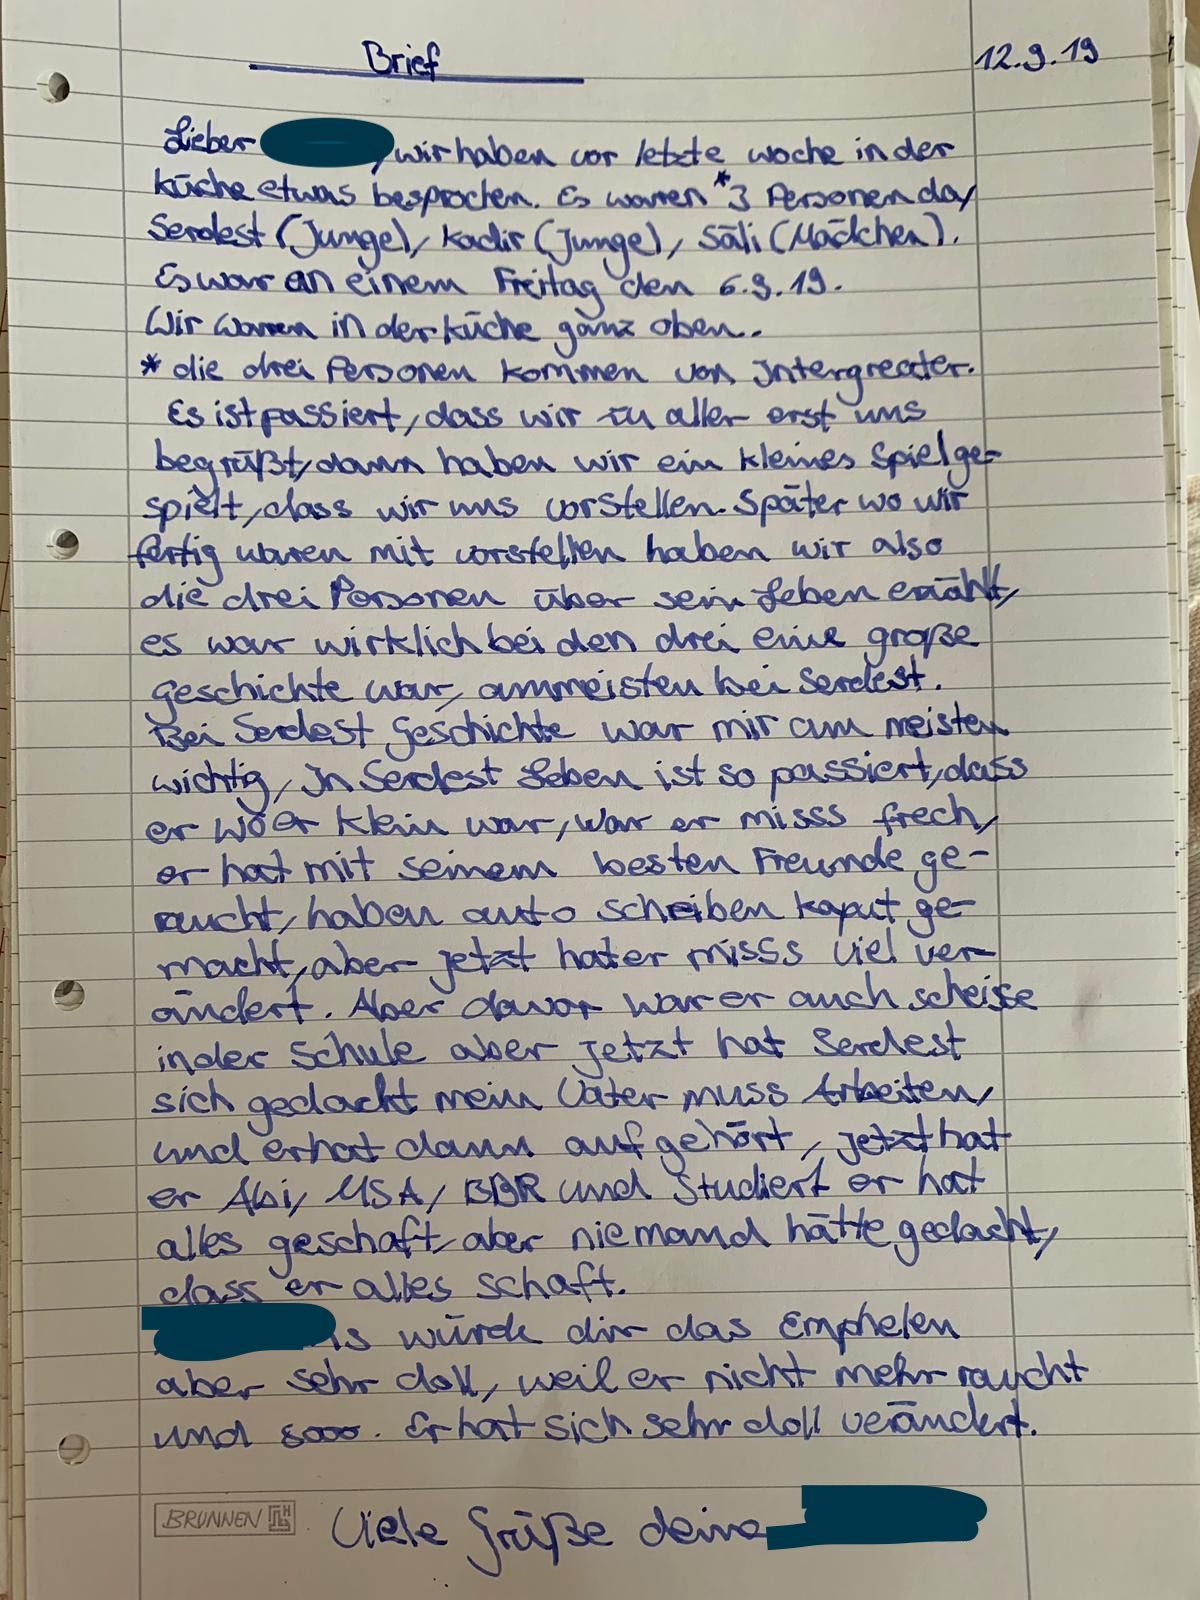 Brief 12.9.19
Lieber , wir haben vor letzte woche in der
küche etwas besprochen. Es waren *3 Personen da,
Serdest (Junge), Kadir (Junge), Säli (Mädchen).
Es war an einem Freitag den 6.9.19.
Wir waren in der küche ganz oben.
* die drei Personen kommen von Intergreater.
Es ist passiert, dass wir zu aller erst uns
begrüßt, dann haben wir ein kleines Spiel ge-
spielt, dass wir uns vorstellen. Später wo wir
fertig waren mit vorstellen haben wir also
die drei Personen über sein Leben erzählt,
es war wirklich bei den drei eine große
geschichte war, ammeisten bei Serdest.
Bei Serdest Geschichte war mir am meisten
wichtig, In Serdest Leben ist so passiert, dass
er wo er klein war, war er misss frech,
er hat mit seinem besten Freunde ge-
raucht, haben auto schreiben kaput ge-
macht, aber jetzt hat er misss viel ver-
ändert. Aber davor war er auch scheisse
in der Schule aber jetzt hat Serdest
sich gedacht mein Vater muss Arbeiten,
und er hat dann auf gehört, jetzt hat
er Abi, MSA, BBR und Studiert er hat
alles geschaft, aber niemand hätte gedacht,
dass er alles schaft.
is würde dir das Emphelen
aber sehr doll, weil er nicht mehr raucht
und sooo. Er hat sich sehr doll verändert.
BRUNNEN
Viele Grüße deine